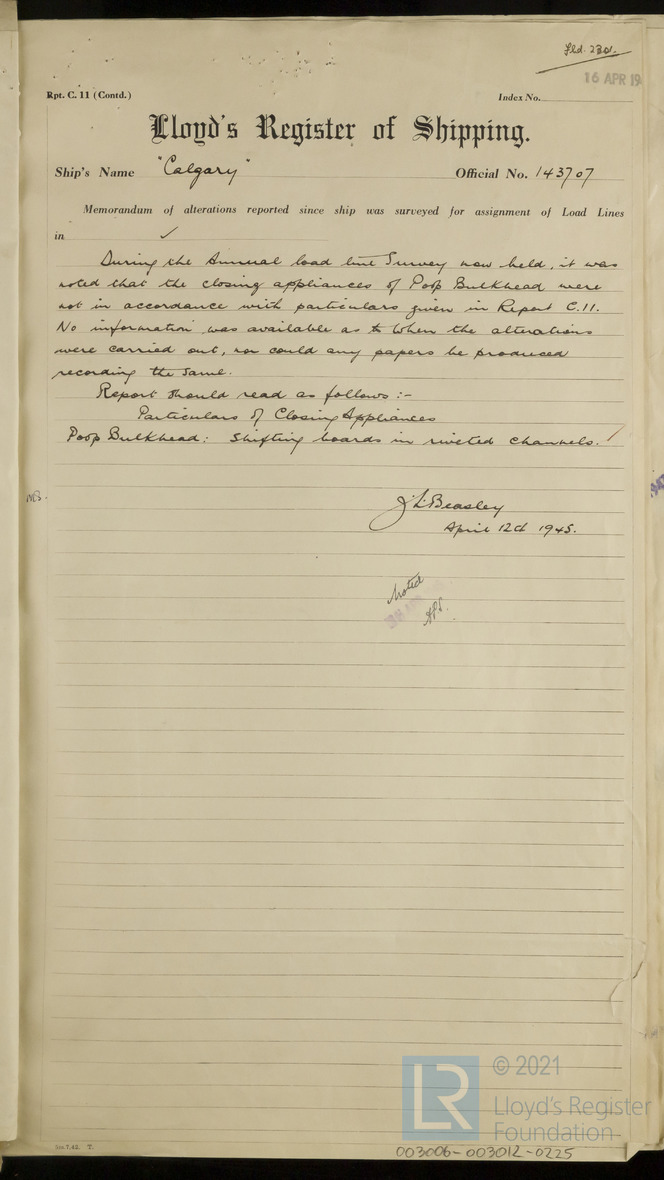 Fld. 230.
16 APR 19
Rpt. C. 11 (Contd.)
Index No.
Lloyd's Register of Shipping.
Ship's Name "Calgary"
Official No. 143707
Memorandum of alterations reported since ship was surveyed for assignment of Load Lines
in ✓
During the Annual load line Survey now held, it was
noted that the closing appliances of Poop Bulkhead were
not in accordance with particulars given in Report C.11.
No information was available as to when the alterations
were carried out, nor could any papers be produced
recording the same.
Report should read as follows :-
Particulars of Closing Appliances
Poop Bulkhead: Shifting boards in riveted channels.
J. L. Beasley
April 12th 1945.
Noted
© 2021
LR
Lloyd's Register
Foundation
003006-003012-0225